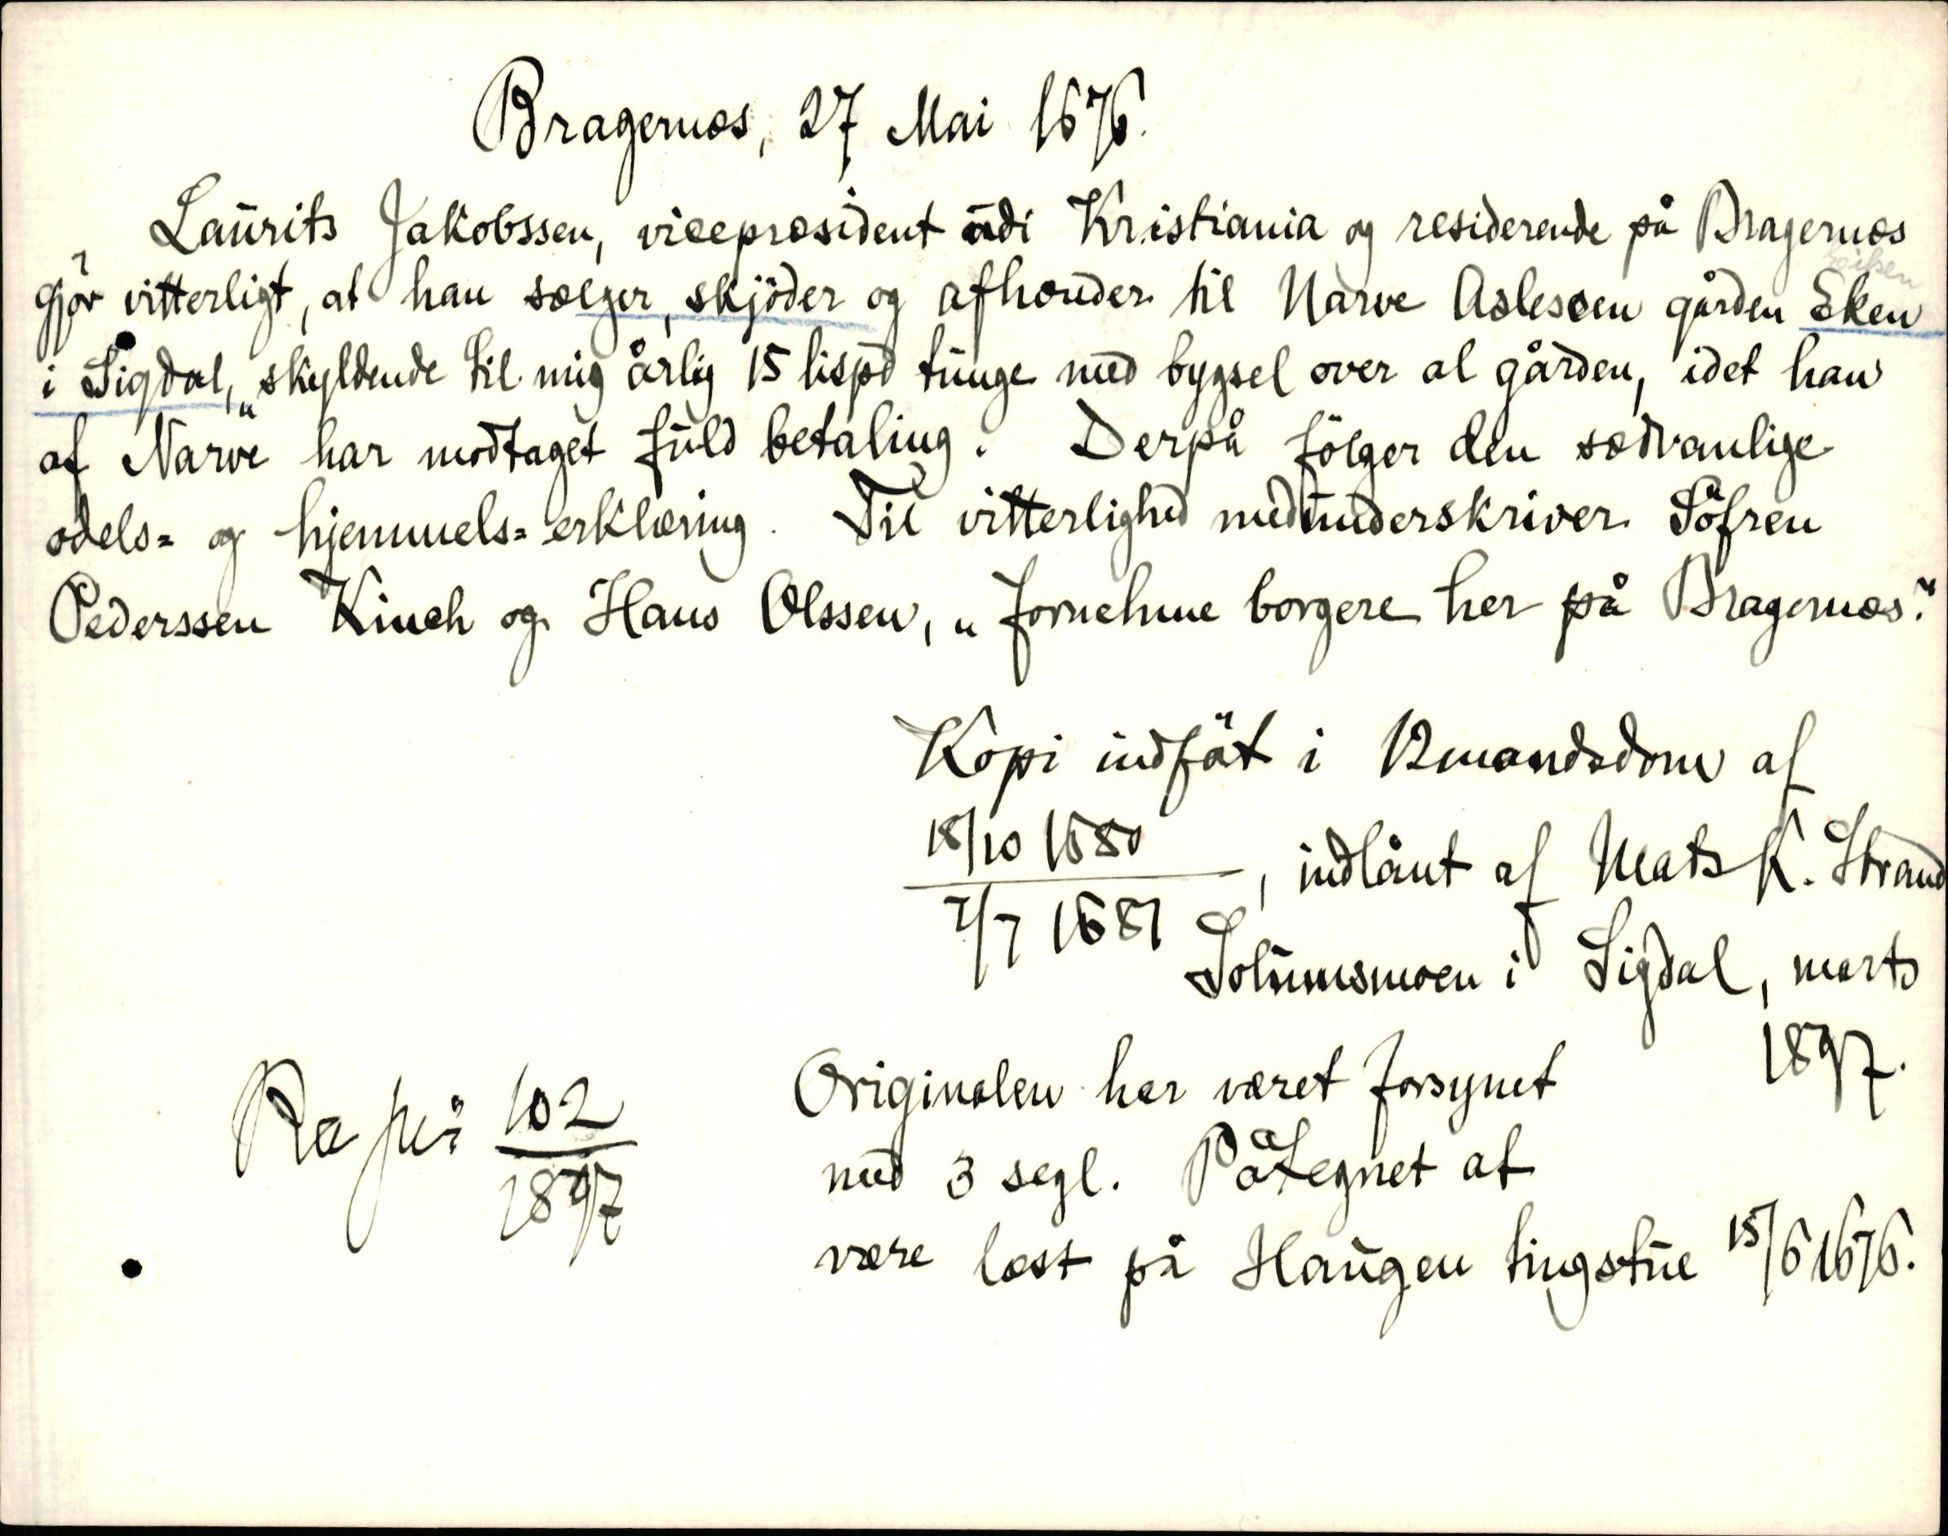 Bragernæs, 27 Mai 1676.
Laurits Jakobssen, vicepræsident udi Kristiania og residerende på Bragernæs
gjör vitterligt, at han sælger, skjöder og afhænder til Narve Aslessen gården Eken
i Sigdal, „skyldende til mig årlig 15 lispd tunge med bygsel over al gården, idet han
af Narve har modtaget fuld betaling. Derpå fölger den sædvanlige
odels= og hjemmels=erklæring. Til vitterlighed medunderskriver Söfren
Pederssen Kinch og Hans Olssen, „fornehme borgere her på Bragernæs."
Kopi indfåt i 12mandsdom af
18/10 1680
7/7 1681
, indlånt af Mats K. Strand
Solumsmoen i Sigdal, marts
1897.
Originalen har været forsynet
med 3 segl. Påtegnet at
være læst på Haugen tingstue 15/6 1676.
102
1897